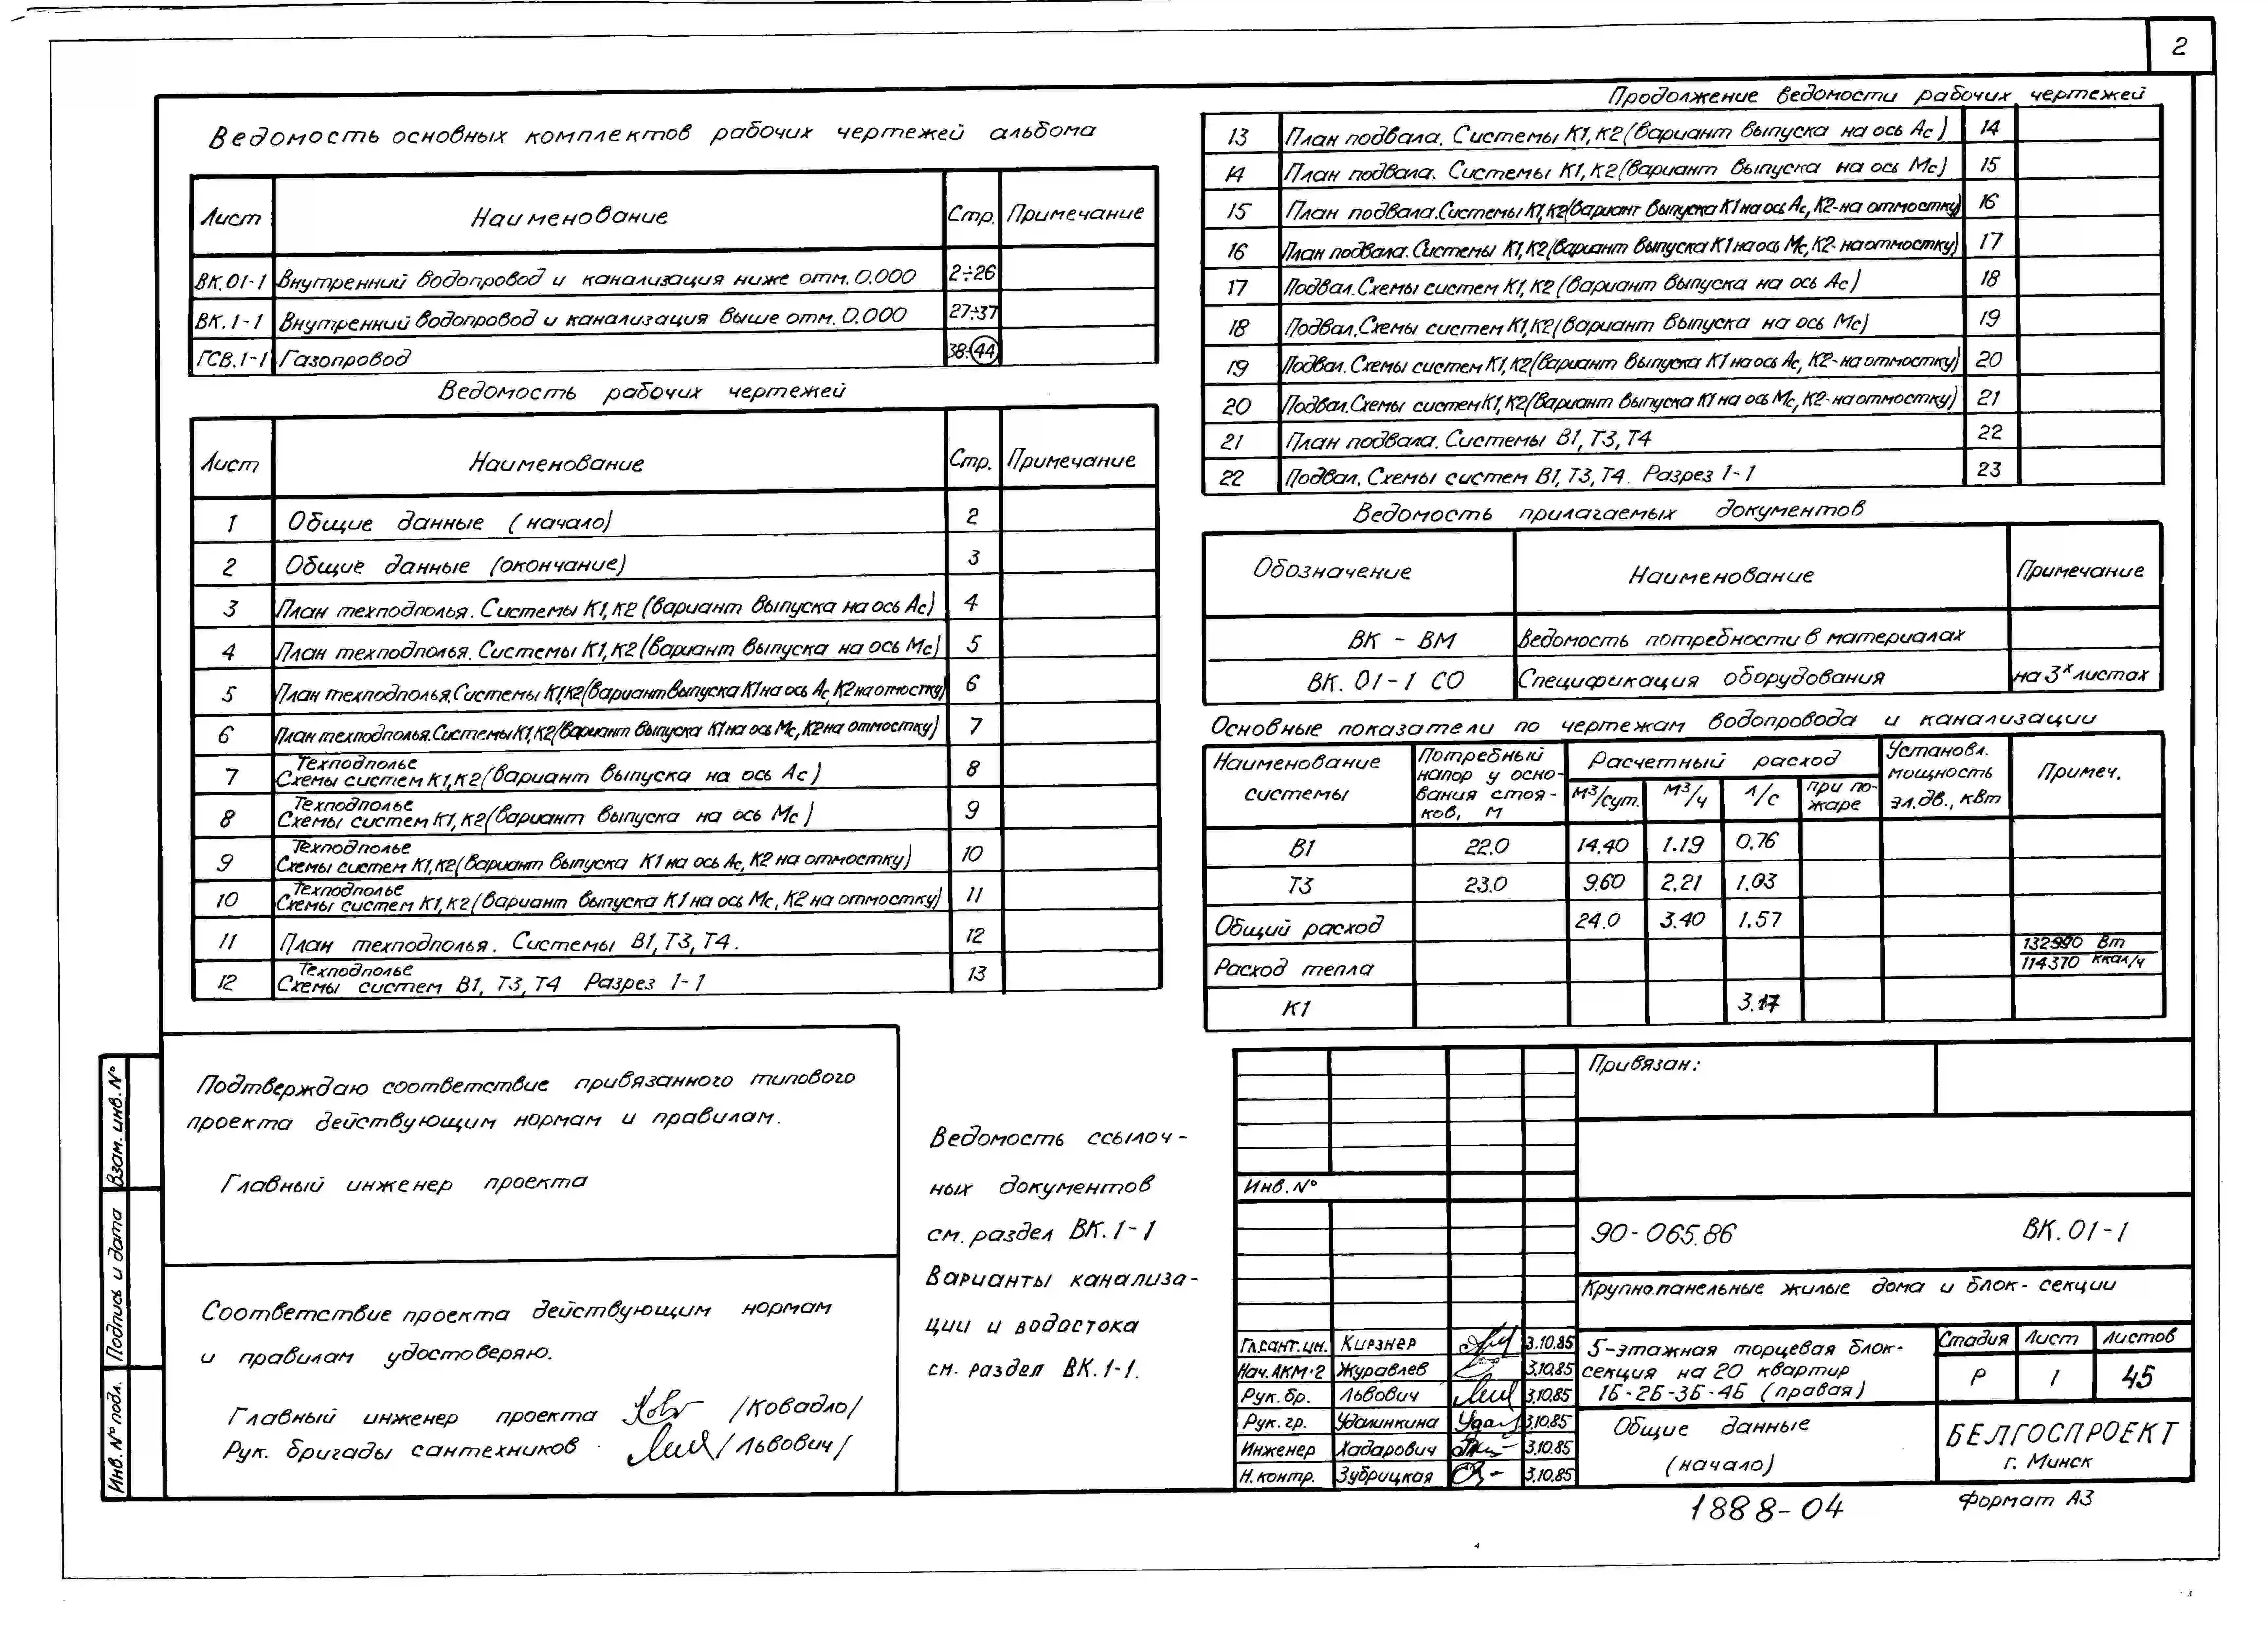 2
Ведомость основных комплектов рабочих чертежей альбома
Лист Наименование Стр. Примечание
ВК.01-1 Внутренний водопровод и канализация ниже отм. 0.000 2÷26
ВК.1-1 Внутренний водопровод и канализация выше отм. 0.000 27÷37
ГСВ.1-1 Газопровод 38÷44
Ведомость рабочих чертежей
Лист Наименование Стр. Примечание
1 Общие данные (начало) 2
2 Общие данные (окончание) 3
3 План техподполья. Системы К1,К2 (вариант выпуска на ось Ас) 4
4 План техподполья. Системы К1,К2 (вариант выпуска на ось Мс) 5
5 План техподполья.Системы К1,К2(вариант выпуска К1 на ось Ас, К2 на отмостку) 6
6 План техподполья.Системы К1,К2(вариант выпуска К1 на ось Мс, К2 на отмостку) 7
7 Техподполье
Схемы систем К1,К2(вариант выпуска на ось Ас) 8
8 Техподполье
Схемы систем К1,К2(вариант выпуска на ось Мс) 9
9 Техподполье
Схемы систем К1,К2(вариант выпуска К1 на ось Ас, К2 на отмостку) 10
10 Техподполье
Схемы систем К1,К2(вариант выпуска К1 на ось Мс, К2 на отмостку) 11
11 План техподполья. Системы В1,Т3,Т4. 12
12 Техподполье
Схемы систем В1, Т3, Т4 Разрез 1-1 13
Продолжение ведомости рабочих чертежей
13 План подвала. Системы К1,К2(вариант выпуска на ось Ас) 14
14 План подвала. Системы К1,К2(вариант выпуска на ось Мс) 15
15 План подвала.Системы К1,К2(вариант выпуска К1 на ось Ас, К2-на отмостку) 16
16 План подвала.Системы К1,К2(вариант выпуска К1 на ось Мс, К2-на отмостку) 17
17 Подвал.Схемы систем К1,К2(вариант выпуска на ось Ас) 18
18 Подвал.Схемы систем К1,К2(вариант выпуска на ось Мс) 19
19 Подвал.Схемы систем К1,К2(вариант выпуска К1 на ось Ас, К2-на отмостку) 20
20 Подвал.Схемы систем К1,К2(вариант выпуска К1 на ось Мс, К2-на отмостку) 21
21 План подвала. Системы В1, Т3, Т4 22
22 Подвал. Схемы систем В1, Т3, Т4. Разрез 1-1 23
Ведомость прилагаемых документов
Обозначение Наименование Примечание
ВК - ВМ Ведомость потребности в материалах
ВК. 01-1 СО Спецификация оборудования на 3х листах
Основные показатели по чертежам водопровода и канализации
Наименование системы Потребный напор у осно- вания стоя- ков, м Расчетный расход Установл. мощность эл.дв., кВт Примеч.
м³/сут. м³/ч л/с при по- жаре
В1 22.0 14.40 1.19 0.76
Т3 23.0 9.60 2.21 1.03
Общий расход 24.0 3.40 1.57
Расход тепла 132990 Вт
114370 ккал/ч
К1 3.17
Подтверждаю соответствие привязанного типового
проекта действующим нормам и правилам.
Главный инженер проекта
Соответствие проекта действующим нормам
и правилам удостоверяю.
Главный инженер проекта /Ковадло/
Рук. бригады сантехников /Львович/
Ведомость ссылоч-
ных документов
см. раздел ВК.1-1
Варианты канализа-
ции и водостока
см. раздел ВК.1-1.
Взам. инв. №
Подпись и дата
Инв. № подл.
Привязан:
Инв. №
90-065.86 ВК.01-1
Крупнопанельные жилые дома и блок-секции
Гл.сант.ин. Кирзнер 3.10.85
Нач.АКМ-2 Журавлев 3.10.85
Рук. бр. Львович 3.10.85
Рук. гр. Удалинкина 3.10.85
Инженер Хадарович 3.10.85
Н.контр. Зубрицкая 3.10.85
5-этажная торцевая блок-
секция на 20 квартир
1Б-2Б-3Б-4Б (правая)
Стадия Лист Листов
Р 1 45
Общие данные
(начало)
БЕЛГОСПРОЕКТ
г. Минск
1888-04 Формат А3